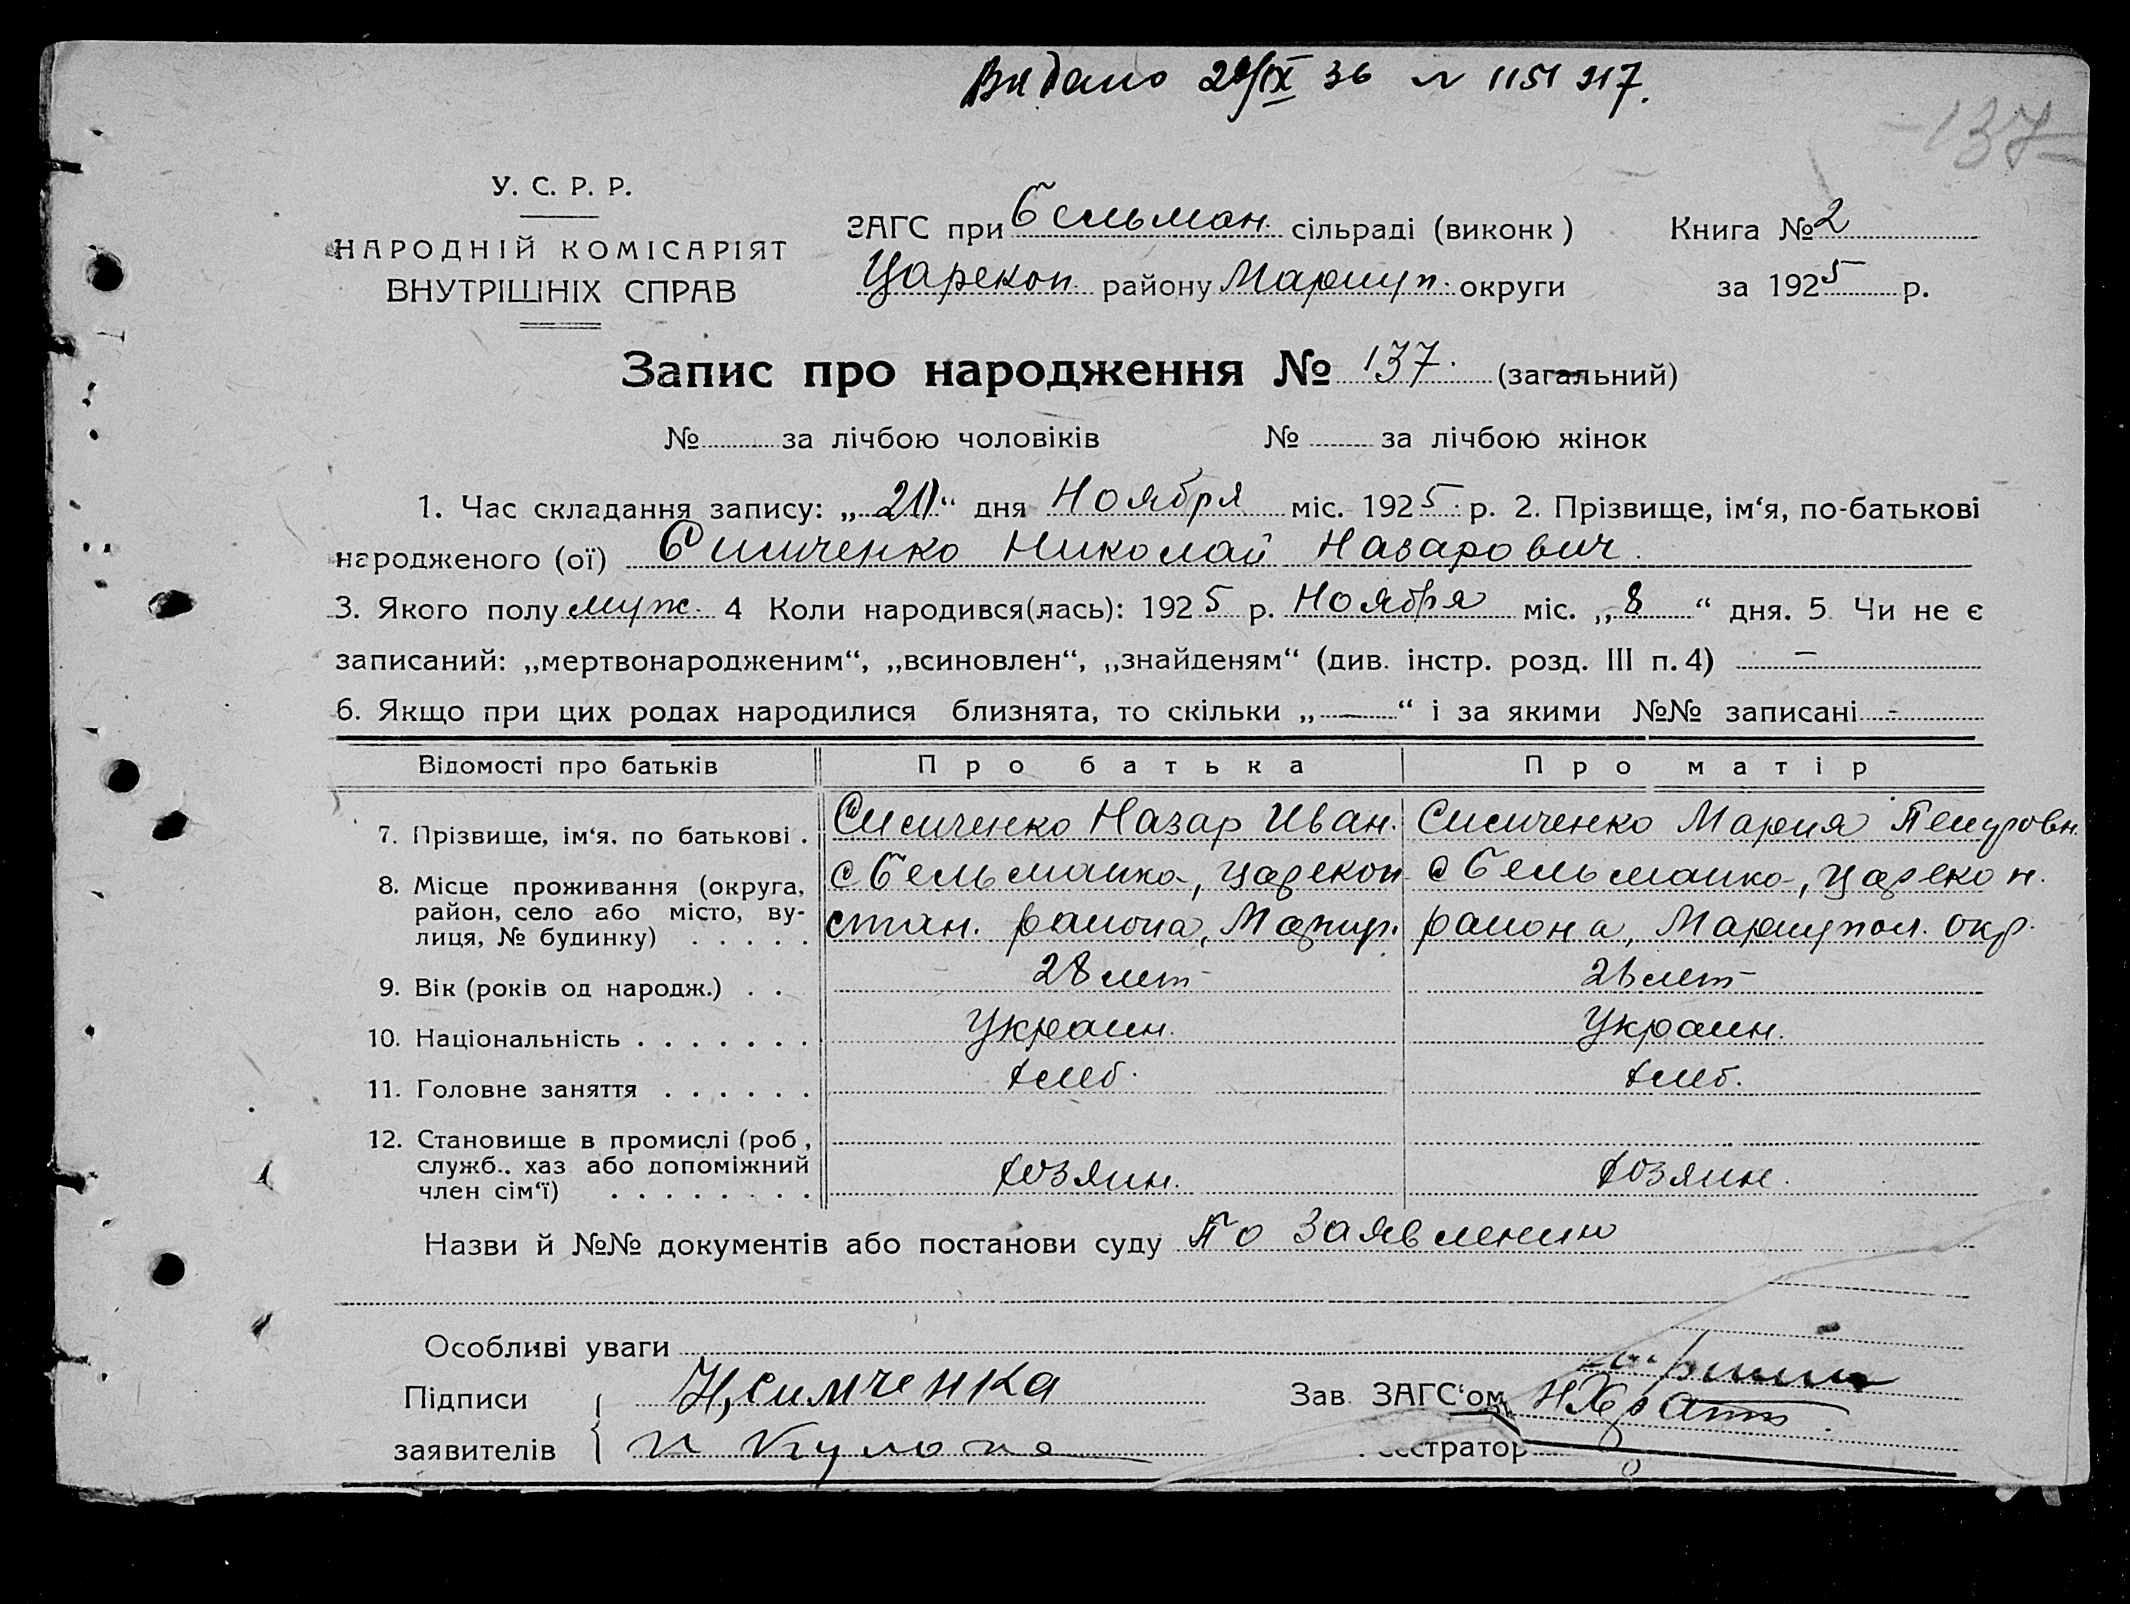 Видано 29/IX 36 N 1151917.
-137-
У. С. Р. Р.
НАРОДНІЙ КОМІСАРІЯТ
ВНУТРІШНІХ СПРАВ
ЗАГС при Бельман. сільраді (виконк)
Царекон. району Мариуп. округи
Книга № 2
за 1925 р.
Запис про народження № 137. (загальний)
№ за лічбою чоловіків № за лічбою жінок
1. Час складання запису: „20“ дня Ноября міс. 1925 р. 2. Прізвище, ім‘я, по-батькові
народженого (ої) Николай Назарович.
3. Якого полу муж. 4 Коли народився(лась): 1925 р. Ноября міс. „8“ дня. 5. Чи не є
записаний: „мертвонародженим“, „всиновлен“, „знайденям“ (див. інстр. розд. III п. 4) —
6. Якщо при цих родах народилися близнята, то скільки „—“ і за якими №№ записані -
Відомості про батьків Про батька Про матір
7. Прізвище, ім‘я. по батькові . Назар Иван. Мария Петровн.
8. Місце проживання (округа, район, село або місто, вулиця, № будинку) . . . . .
с Бельманка, Царекон
стан. района, Мариуп.
с Бельманка, Царекон.
района, Мариупол. окр.
9. Вік (років од народж.) . . 28 лет 26 лет
10. Національність . . . . . . . Украин. Украин.
11. Головне заняття . . . . . . Хлеб. Хлеб.
12. Становище в промислі (роб, служб.. хаз або допоміжний член сім‘ї) . . . . . . . . Хозяин. Хозяин.
Назви й №№ документів або постанови суду По заявлению
Особливі уваги
Підписи
заявителів
Зав ЗАГС‘ом